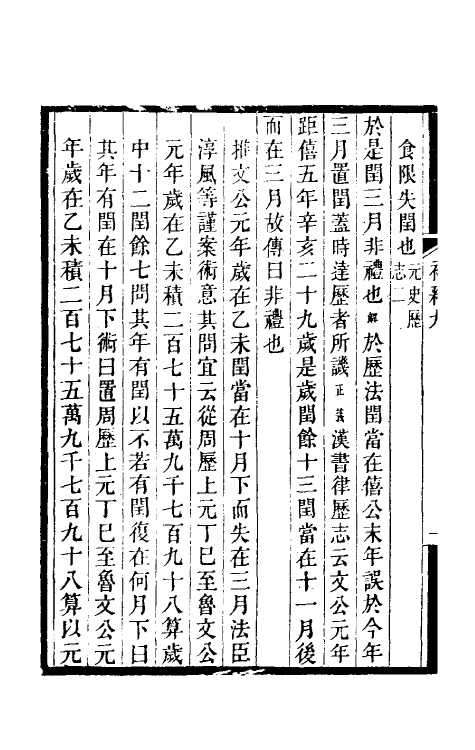 食限失閏也元史歷志二
於是閏三月非禮也解於歷法閏當在僖公末年誤於今年
三月置閏蓋時達歷者所譏正義漢書律歷志云文公元年
距僖五年辛亥二十九歲是歲閏餘十三閏當在十一月後
而在三月故傳曰非禮也
推文公元年歲在乙未閏當在十月下而失在三月法臣
淳風等謹案術意其問宜云從周歷上元丁巳至魯文公
元年歲在乙未積二百七十五萬九千七百九十八算歲
中十二閏餘七問其年有閏以不若有閏復在何月下曰
其年有閏在十月下術曰置周歷上元丁巳至魯文公元
年歲在乙未積二百七十五萬九千七百九十八算以元